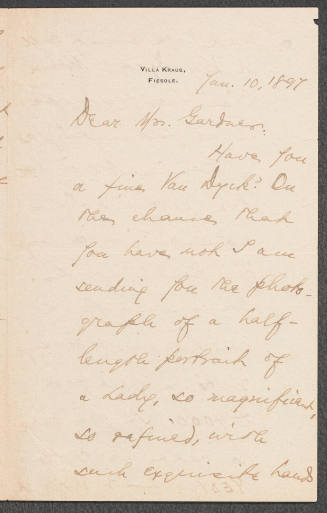 Villa Kraus,
Fiesole.
Jan. 10, 1897
Dear Mrs. Gardner:
Have you
a fine Van Dyck? On
the chance that
you have not I am
sending you the photo-
graph of a half-
length portrait of
a Lady, so magnificent,
so refined, with
such exquisite hands